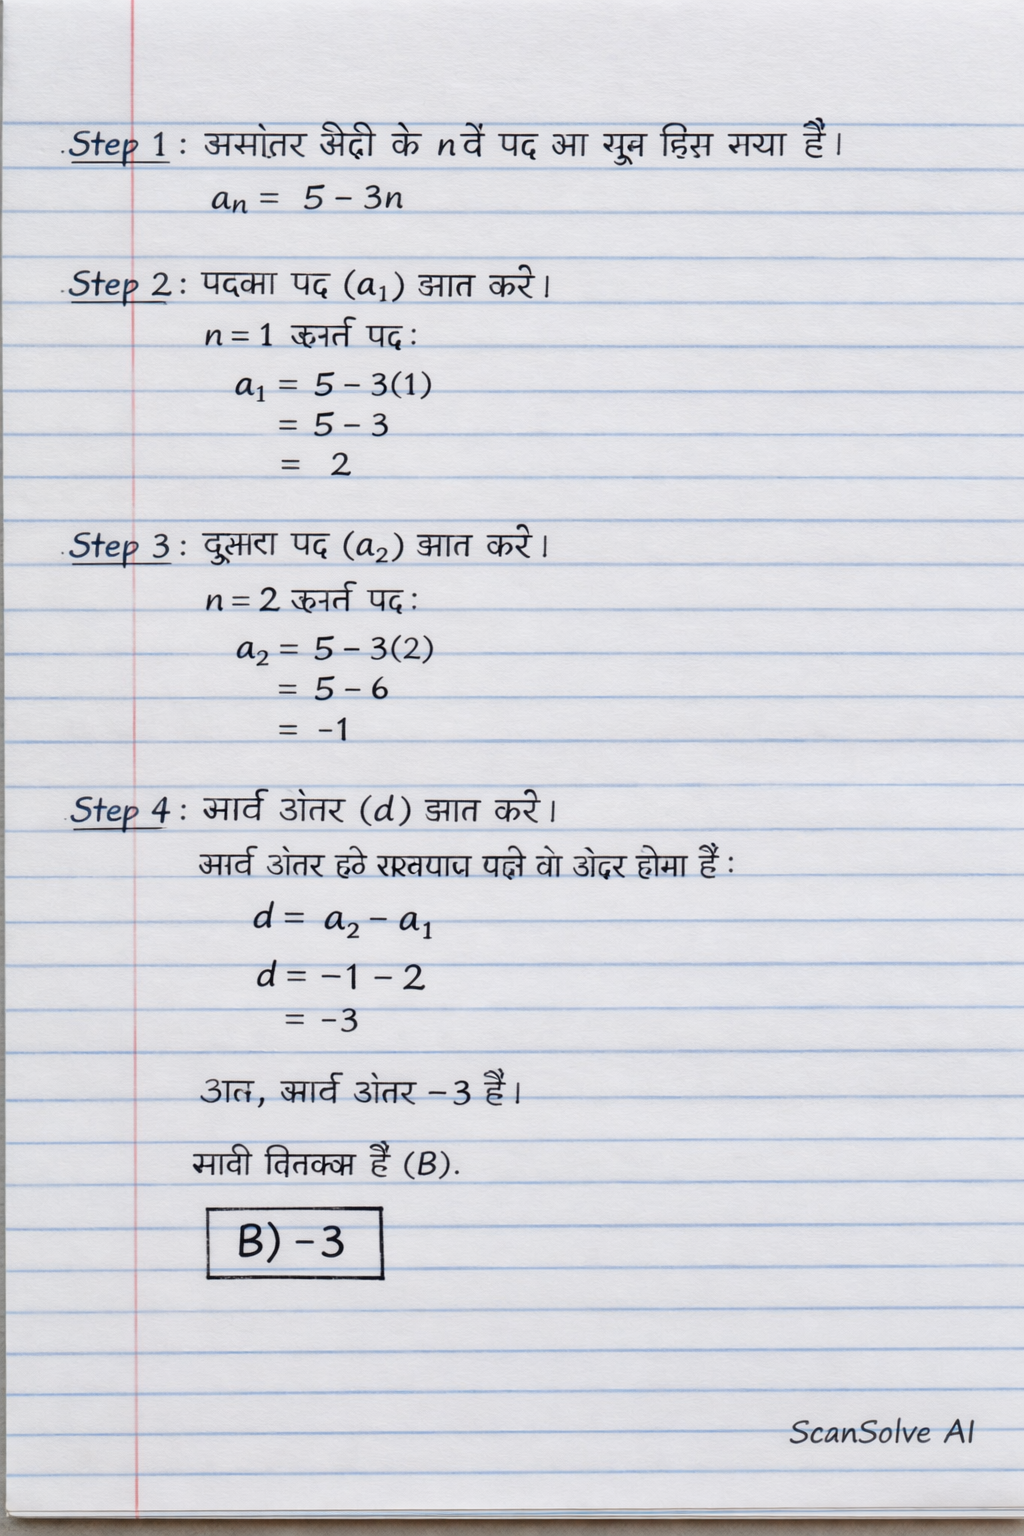 Step 1: असांतर श्रेदी के n वें पद आ सून हिस सया हैं।
an = 5 - 3n
Step 2: पदका पद (a₁) ज्ञात करे।
n = 1 पद:
a₁ = 5 - 3(1)
= 5 - 3
= 2
Step 3: पद (a₂) ज्ञात करे।
n = 2 पद:
a₂ = 5 - 3(2)
= 5 - 6
= -1
Step 4: सार्व अंतर (d) ज्ञात करे।
सार्व अंतर वो अंदर होमा हैं:
d = a₂ - a₁
d = -1 - 2
= -3
सार्व अंतर -3 हैं।
सावी हैं (B).
B) -3
ScanSolve AI